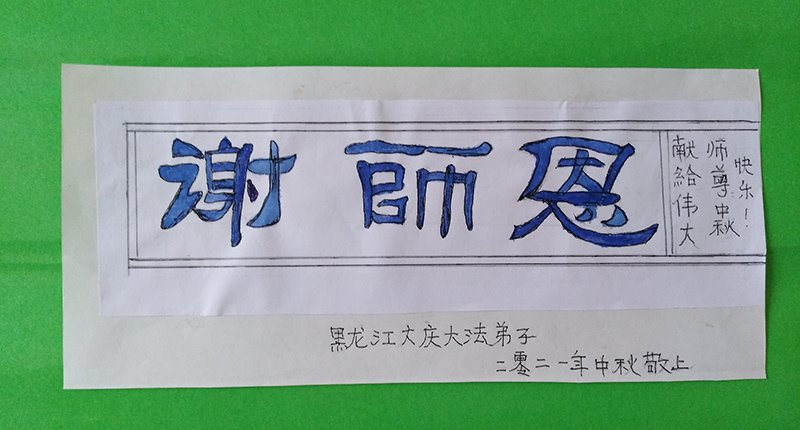 谢師恩
献給伟大
师尊中秋
快乐！
黑龙江大庆大法弟子
二零二一年中秋敬上